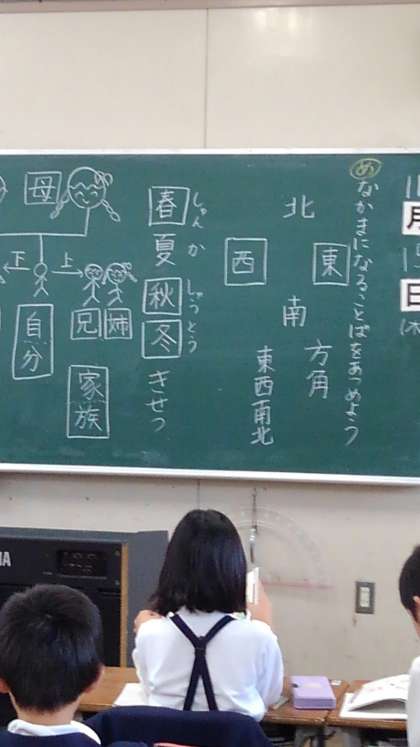 月
日
め なかまになることばをあつめよう
北
東
西
南
方角
東西南北
しゅん か しゅう とう
春夏秋冬
きせつ
母
上
下
姉
兄
自分
家族